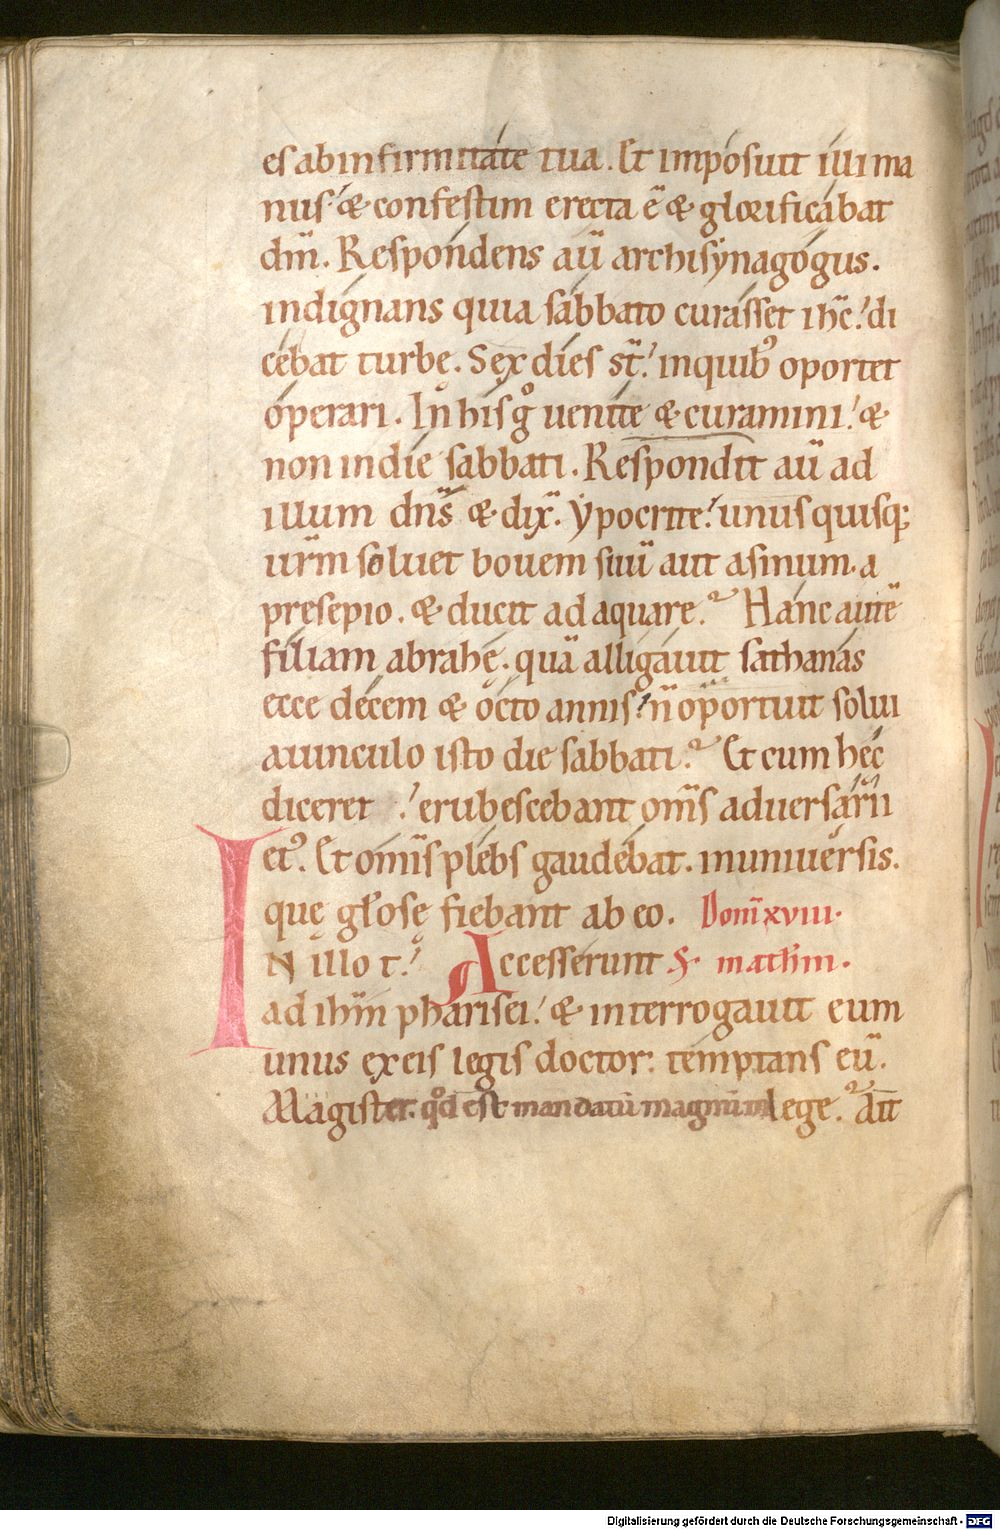 es ab infirmitate tua. Et imposuit illi ma
nus. & confestim erecta ē & glorificabat
dm̄. Respondens aū archisynagogus.
indignans quia sabbato curasset ihc̄. di
cebat turbę. Sex dies st̄. in quib' oportet
operari. In his gͦ uenite & curamini. &
non in die sabbati. Respondit aū ad
illum dn̄s & dix̄. ẏpocrite. unus quisq;
ur̄m soluet bouem suū aut asinum. a
pręsepio. & ducit ad aquare. Hanc autē
filiam abrahę. quā alligauit sathanas
ecce decem & octo annis. n̄ oportuit solui
a uinculo isto die sabbati. Et cum hęc
diceret. erubescebant om̄s aduersarii
ei'. Et om̄is plebs gaudebat. in uniuersis.
quę głosę fiebant ab eo. Dom̄ xviii.
IN illo t. Accesserunt S. mathm̄.
ad ihm̄ pharisei. & interrogauit eum
unus ex eis legis doctor. temptans eū.
Magister. qͦd est mandatū magnū in lege. Ait
Digitalisierung gefördert durch die Deutsche Forschungsgemeinschaft - DFG